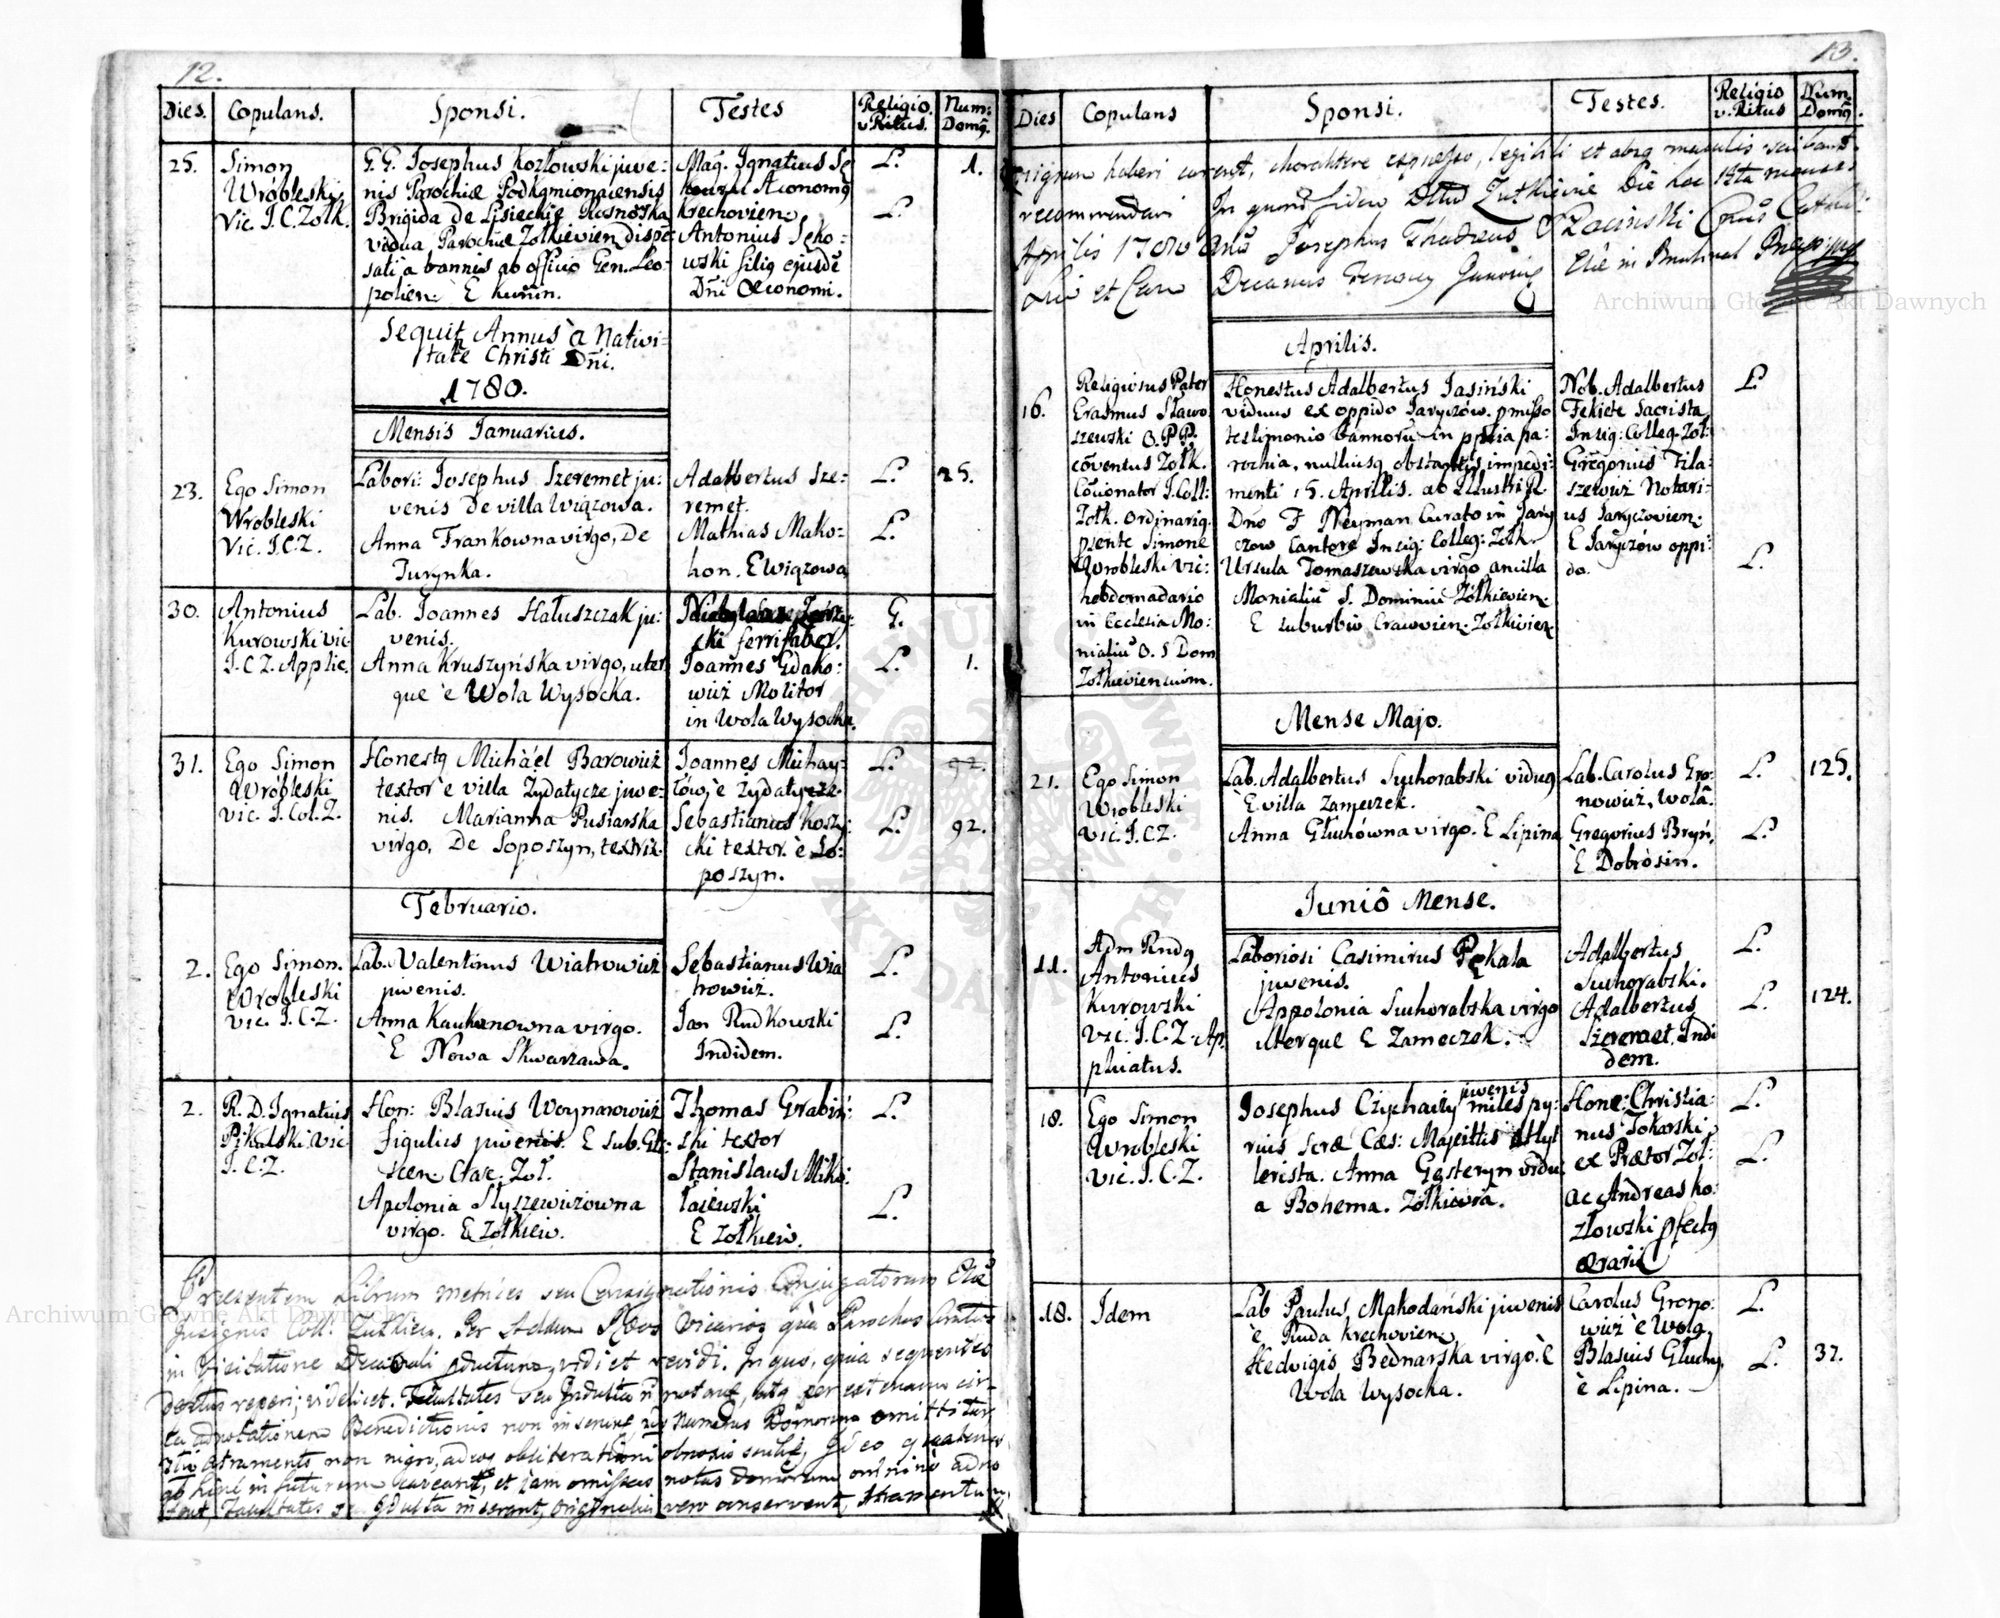 12.
Dies. Copulans. Sponsi. Testes Religio v. Ritus. Num: Domq.
25. Simon
Wróbleski
Vic. I. C. Zołk.
G. G. Josephus Kozłowski juve:
nis Parochiæ Podkamionaiensis
Brigida de Lisieckie Rosnoska
vidua, Parochiæ Zołkievien dispē
sati a bannis ab officio Gen. Leo-
polien.
Mag. Ignatius
Œconomq
Krechovien.
Antonius Sęko:
wski filiq ejusdē
Dñi Œconomi.
L.
L.
1.
Sequit Annus à Nativi-
tate Christi Dñi.
1780.
Mensis Januarius.
23. Ego Simon
Wrobleski
Vic. I. C. Z.
Labori: Josephus Szeremet ju:
venis De villa Wiązowa.
Anna Frankowna virgo, De
Turynka.
Adalbertus Sze-
remet.
Mathias Mako-
hon. E Wiązowa
L.
L.
25.
30. Antonius
Kurowski vic
I. C Z. Applic.
Lab. Joannes Hałuszczak ju:
venis.
Anna Kruszyńska virgo, uter
que è Wola Wysocka.
cki ferrifaber.
Joannes Gdako:
wicz Molitor
in Wola Wysocka.
G.
L.
1.
31. Ego Simon
Wróbleski
vic. I. Col. Z.
Honestq Michàèl Barowicz
textor è villa Zydatycze juve-
nis. Marianna Pusiarska
virgo, De Soposzyn, textrix.
Joannes Michay-
łów, è Zydatycze
Sebastianus Koszy:
cki textor è So:
poszyn.
L.
L.
92.
92.
Februario.
2. Ego Simon.
Wrobleski
vic. I. C. Z.
Lab. Valentinus Wiatrowicz
juvenis.
Anna Kauhanowna virgo.
È Nowa Skwarzawa.
Sebastianus Wia
trowicz.
Jan Rudkowski
Indidem.
L.
L.
2. R. D. Ignatius
Pikalski Vic
I. C. Z.
Hon: Blasius Woynarowicz
figulus juvenis. E Sub. Gli:
Zoł.
Apolonia Słyszewiczowna
virgo. E Zołkiew.
Thomas Grabiń:
ski textor
Stanislaus Miko:
łaiewski
E Zołkiew.
L.
L.
Præsentem Librum metrices seu Consignationis Conjugatorum Eliæ
Insignis Coll: Zulkien. Per Vicarios quà Parochos
in Visitatione Decanali vidi et revidi. In quo, quia sequentes
defectus reperi; videlicet. Facultates seu Indulta
adnotationem Benedictionis non Numerus Domorum omittitur
Atramento non nigro,
in futurum caveant, et jam omissas notas domorum omnino
Facultates seu Indulta inserant, originalia vero conservent, Atramentum
13.
Dies Copulans Sponsi. Testes. Religio v. Ritus Num. Domq.
nigrum haberi curent, charaktere expresso, legibili et absq maculis scribant
recommendavi In quorum fidem Zulkieviæ Die hac mensis
Aprilis 1780 Josephus Thadæus
Decanus
Aprilis.
16. Religiosus Pater
Erasmus Sławo
szewski O. P P.
cōventus Zołk.
Cōcionator I. Coll:
Zołk. Ordinariq.
psente Simone
Wrobleski vic:
hebdomadario
in Ecclesia Mo:
nialiū O. S Dom
Zołkieviensium.
Honestus Adalbertus Jasiński
viduus ex oppido Jaryczów. pmisso
testimonio bannorū in ppria pa:
rochia, nulliusq obstantis impedi:
menti 15. Aprilis. ab Illustri R.
Dno F Neyman Curato in Jary
czow Cantore Insig: Colleg: Zołk.
Ursula Tomaszewska virgo, ancilla
Monialiū S. Dominici Zołkievien.
E suburbio Zołkivien
Nob. Adalbertus
Fekiete Sacrista
Insig: Colleg. Zoł:
Gregorius Fila:
szewicz Notari:
us Jaryczovien.
E Jaryczów oppi:
do.
L.
L.
Mense Majo.
21. Ego Simon
Wrobleski
Vic. I. C Z.
Lab. Adalbertus Suchorabski viduq
È villa Zameczek.
Anna Głuchówna virgo. È Lipina
Lab. Carolus Gro:
nowicz, Wola.
Gregorius Bryń.
È Dobrosin.
L.
L.
125.
Juniô Mense.
11. Adm Rndq
Antonius
Kurowski
Vic. I. C. Z. Ap.
plicatus.
Laboriosi Casimirus Pękala
juvenis.
Appolonia Suchorabska virgo
uterque E Zameczek.
Adalbertus
Suchorabski.
Adalbertus
Szeremet. Indi
dem.
L.
L.
124.
18. Ego Simon
Wrobleski
Vic. I. C. Z.
juvenis
Josephus Czychaczy miles py-
rius Scræ Cæs: Majesttis Attyl
lerista. Anna Gęsteryn vidu
a Bohema. Zołkiewia.
Hone: Christia-
nus Tokarski,
ex Prætor Zoł:
ac Andreas ko:
złowski pfectq
ærarii
L.
L.
18. Idem
Lab Paulus Makodański juvenis
è Ruda Krechovien.
Hedvigis Bednarska virgo. è
Wola Wysocka.
Carolus Grono:
wicz è Wola.
Blasius Głuchy
è Lipina.
L.
L.
37.
Archiwum Główne Akt Dawnych
Archiwum Główne Akt Dawnych